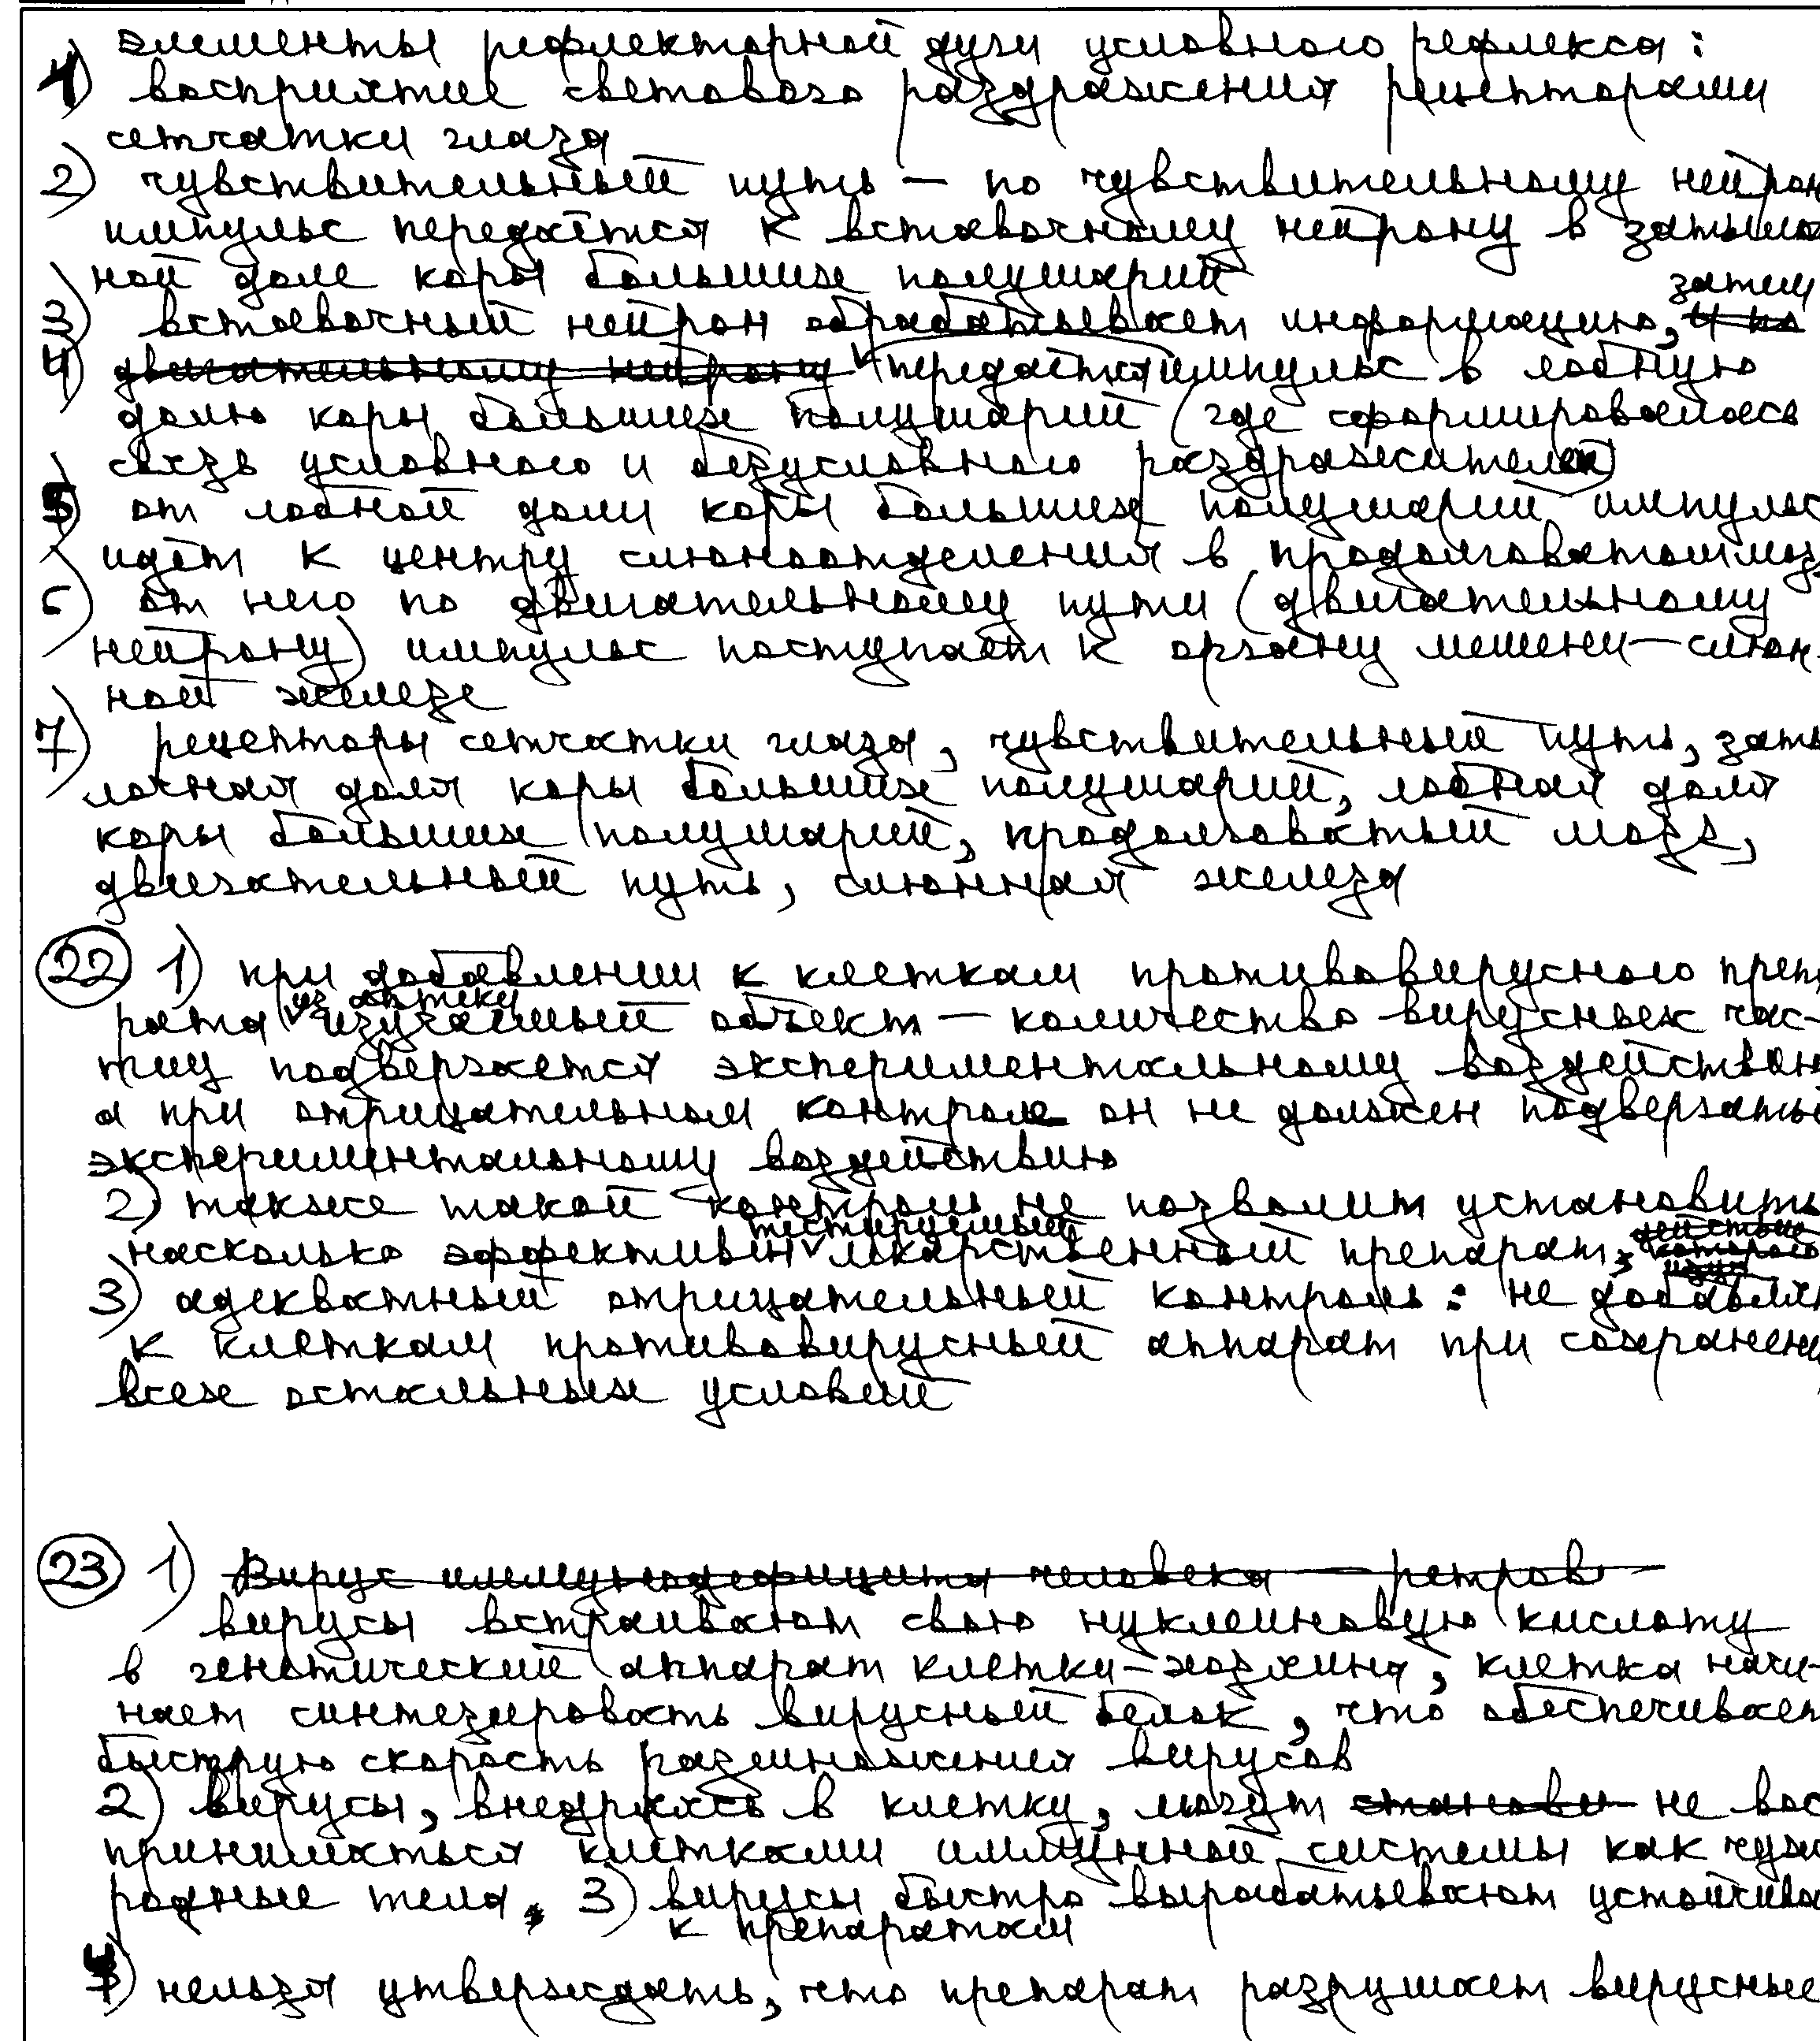 элементы рефлекторной дуги условного рефлекса:
1) восприятие светового раздражения рецепторами
сетчатки глаза
2) чувствительный путь — по чувствительному нейрон
импульс передаётся к вставочному нейрону в затылоч
ной доле коры больших полушарий
3) вставочный нейрон обрабатывает информацию, затем
4) двигательному нейрону передаётся импульс в лобную
долю коры больших полушарий (где сформировалась
связь условного и безусловного раздражителей)
5) от лобной доли коры больших полушарий импульс
идёт к центру слюноотделения в продолговатом моз
6) от него по двигательному пути (двигательному
нейрону) импульс поступает к органу мишени — слюн
ной железе
7) рецепторы сетчатки глаза, чувствительный путь, заты
лочная доля коры больших полушарий, лобная доля
коры больших полушарий, продолговатый мозг,
двигательный путь, слюнная железа
22 1) при добавлении к клеткам противовирусного преп
рата из аптеки изучаемый объект — количество вирусных час-
тиц подвергается экспериментальному воздействию
а при отрицательном контроле он не должен подвергаться
экспериментальному воздействию
2) также такой контроль не позволит установить
насколько эффективен тестируемый лекарственный препарат,
3) адекватный отрицательный контроль: не добавлять
к клеткам противовирусный аппарат при сохранени
всех остальных условий
23 1) Вирус иммунодефицита человека — ретров
вирусы встраивают свою нуклеиновую кислоту
в генетический аппарат клетки-хозяина, клетка начи-
нает синтезировать вирусный белок, что обеспечивает
быструю скорость размножения вирусов
2) вирусы, внедряясь в клетку, могут станови не вос
приниматься клетками иммунной системы как чуже
родные тела. 3) вирусы быстро вырабатывают устойчиво
к препаратам
4) нельзя утверждать, что препарат разрушает вирусные